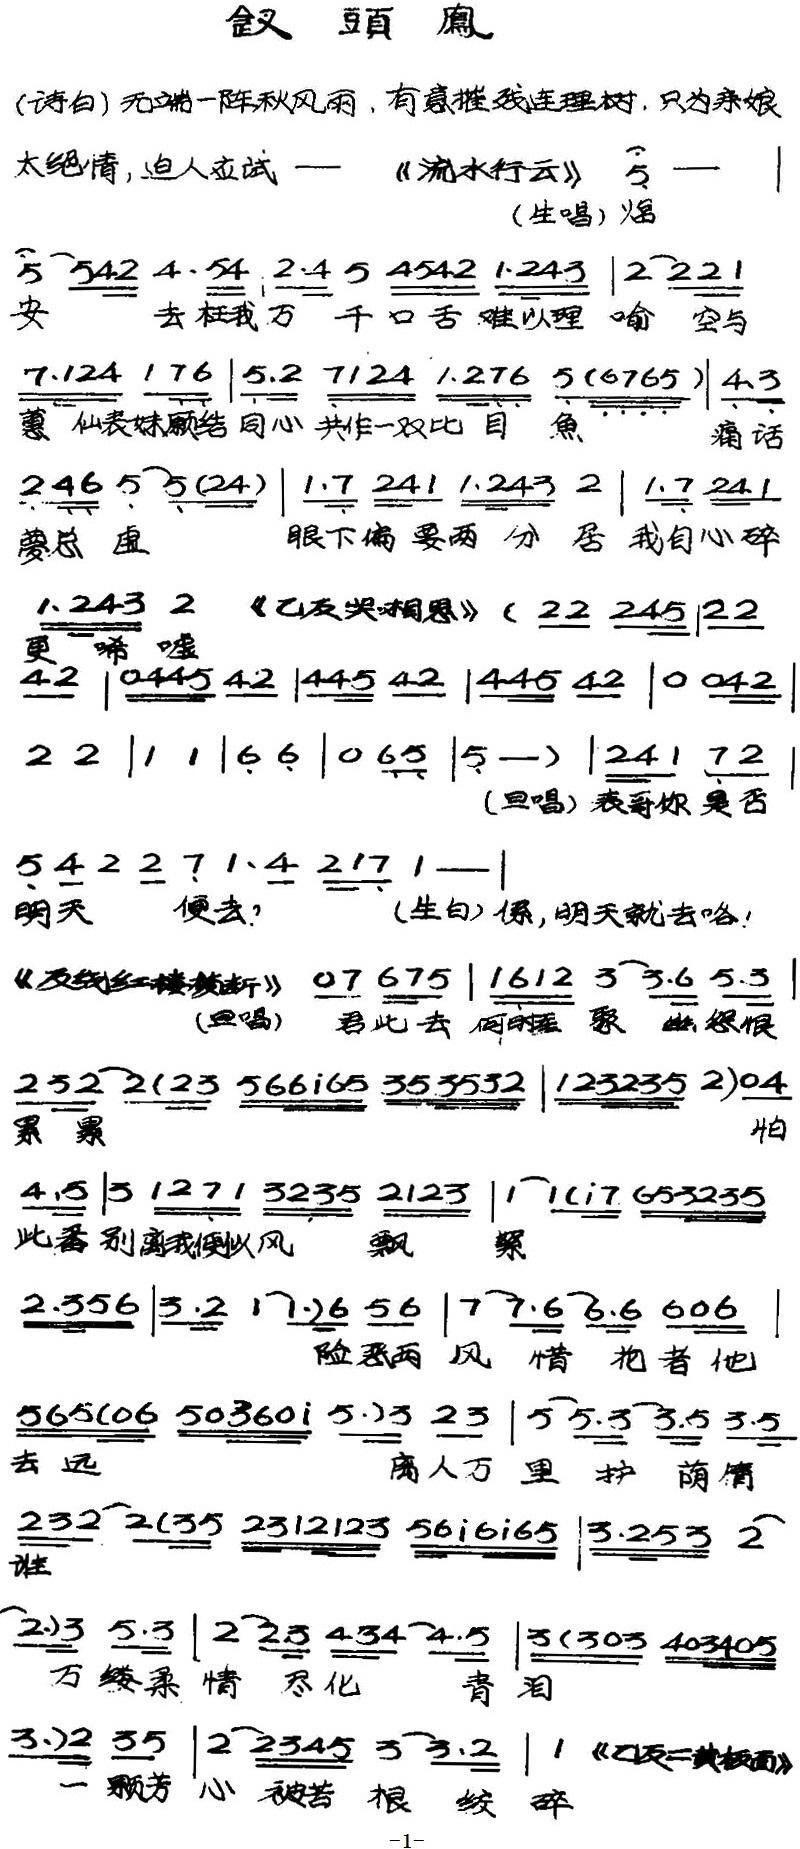 釵頭鳳
(诗白)无端一阵秋风雨，有意摧残连理树，只为亲娘
太绝情，迫人应试 —— 《流水行云》 5 — |
(生唱)焔
5 542 4·54 2·4 5 4542 1·243 | 2 221
安 去枉我万千口舌难以理喻 空与
7·124 176 | 5·2 7124 1·276 5(6765) | 4·3
蕙仙表妹願结同心共作一双比目魚 痛话
246 5 5(24) | 1·7 241 1·243 2 | 1·7 241
夢总虚 眼下偏要两分居我自心碎
1·243 2 《乙反哭相思》(22 245 | 22
更唏嘘
42 | 0445 42 | 445 42 | 445 42 | 0 042 |
2 2 | 1 1 | 6 6 | 0 65 | 5 —) | 241 72 |
(旦唱)表哥你是否
5 4 2 2 7 1·4 217 1 — |
明天便去？ (生白)係，明天就去咯！
《反线红楼残断》 07 675 | 1612 3 3·6 5·3 |
(旦唱) 君此去何时 聚 怨恨
232 2(23 566i65 353532 | 123235 2)04
累累 怕
4·5 | 3 1271 3235 2123 | 1 1(i7 653235
此番别离我便似风飘絮
2·356 | 3·2 1 1·)6 56 | 7 7·6 6·6 606 |
险恶两风惜 者他
565(06 50360i 5·)3 23 | 5 5·3 3·5 3·5
去远 离人万里护荫倩
232 2(35 2312123 56i6i65 | 3·253 2
谁
2·)3 5·3 | 2 23 434 4·5 | 3(303 403405
万缕柔情尽化青泪
3·)2 35 | 2 2345 3 3·2 | 1 《乙反二黄板面》
一颗芳心被苦根绞碎
-1-